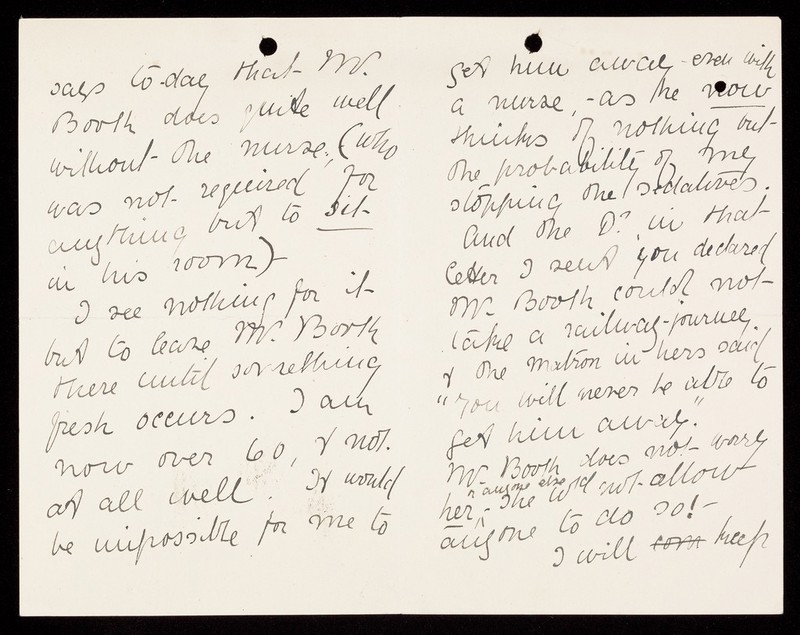 says to-day that Mr.
Booth does quite well
without the nurse, (who
was not required for
anything but to sit
in his room)-
I see nothing for it
but to leave Mr. Booth
there until something
fresh occurs. I am
now over 60, & not
at all well. It would
be impossible for me to
get him away - even with
a nurse, - as he now
thinks of nothing but
the probability of my
stopping the sedatives.
And the Dr. in that
letter I sent you declared
Mr. Booth could not
take a railway-journey.
& the matron in hers said
"You will never be able to
get him away."
Mr. Booth does not worry
her, or anyone else. She wld not allow
anyone to do so! -
I will com keep